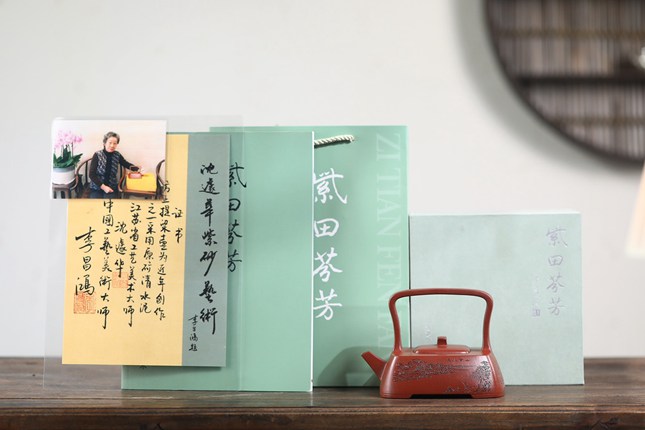 沈遽華紫砂藝術
李昌鴻題
证书
上提梁壶为近年创作
之一采用原矿清水泥
江苏省工艺美术大师
沈遽华
中國工艺美術大师
李昌鴻
紫田芬芳
紫田芬芳
ZI TIAN FEN
紫田芬芳